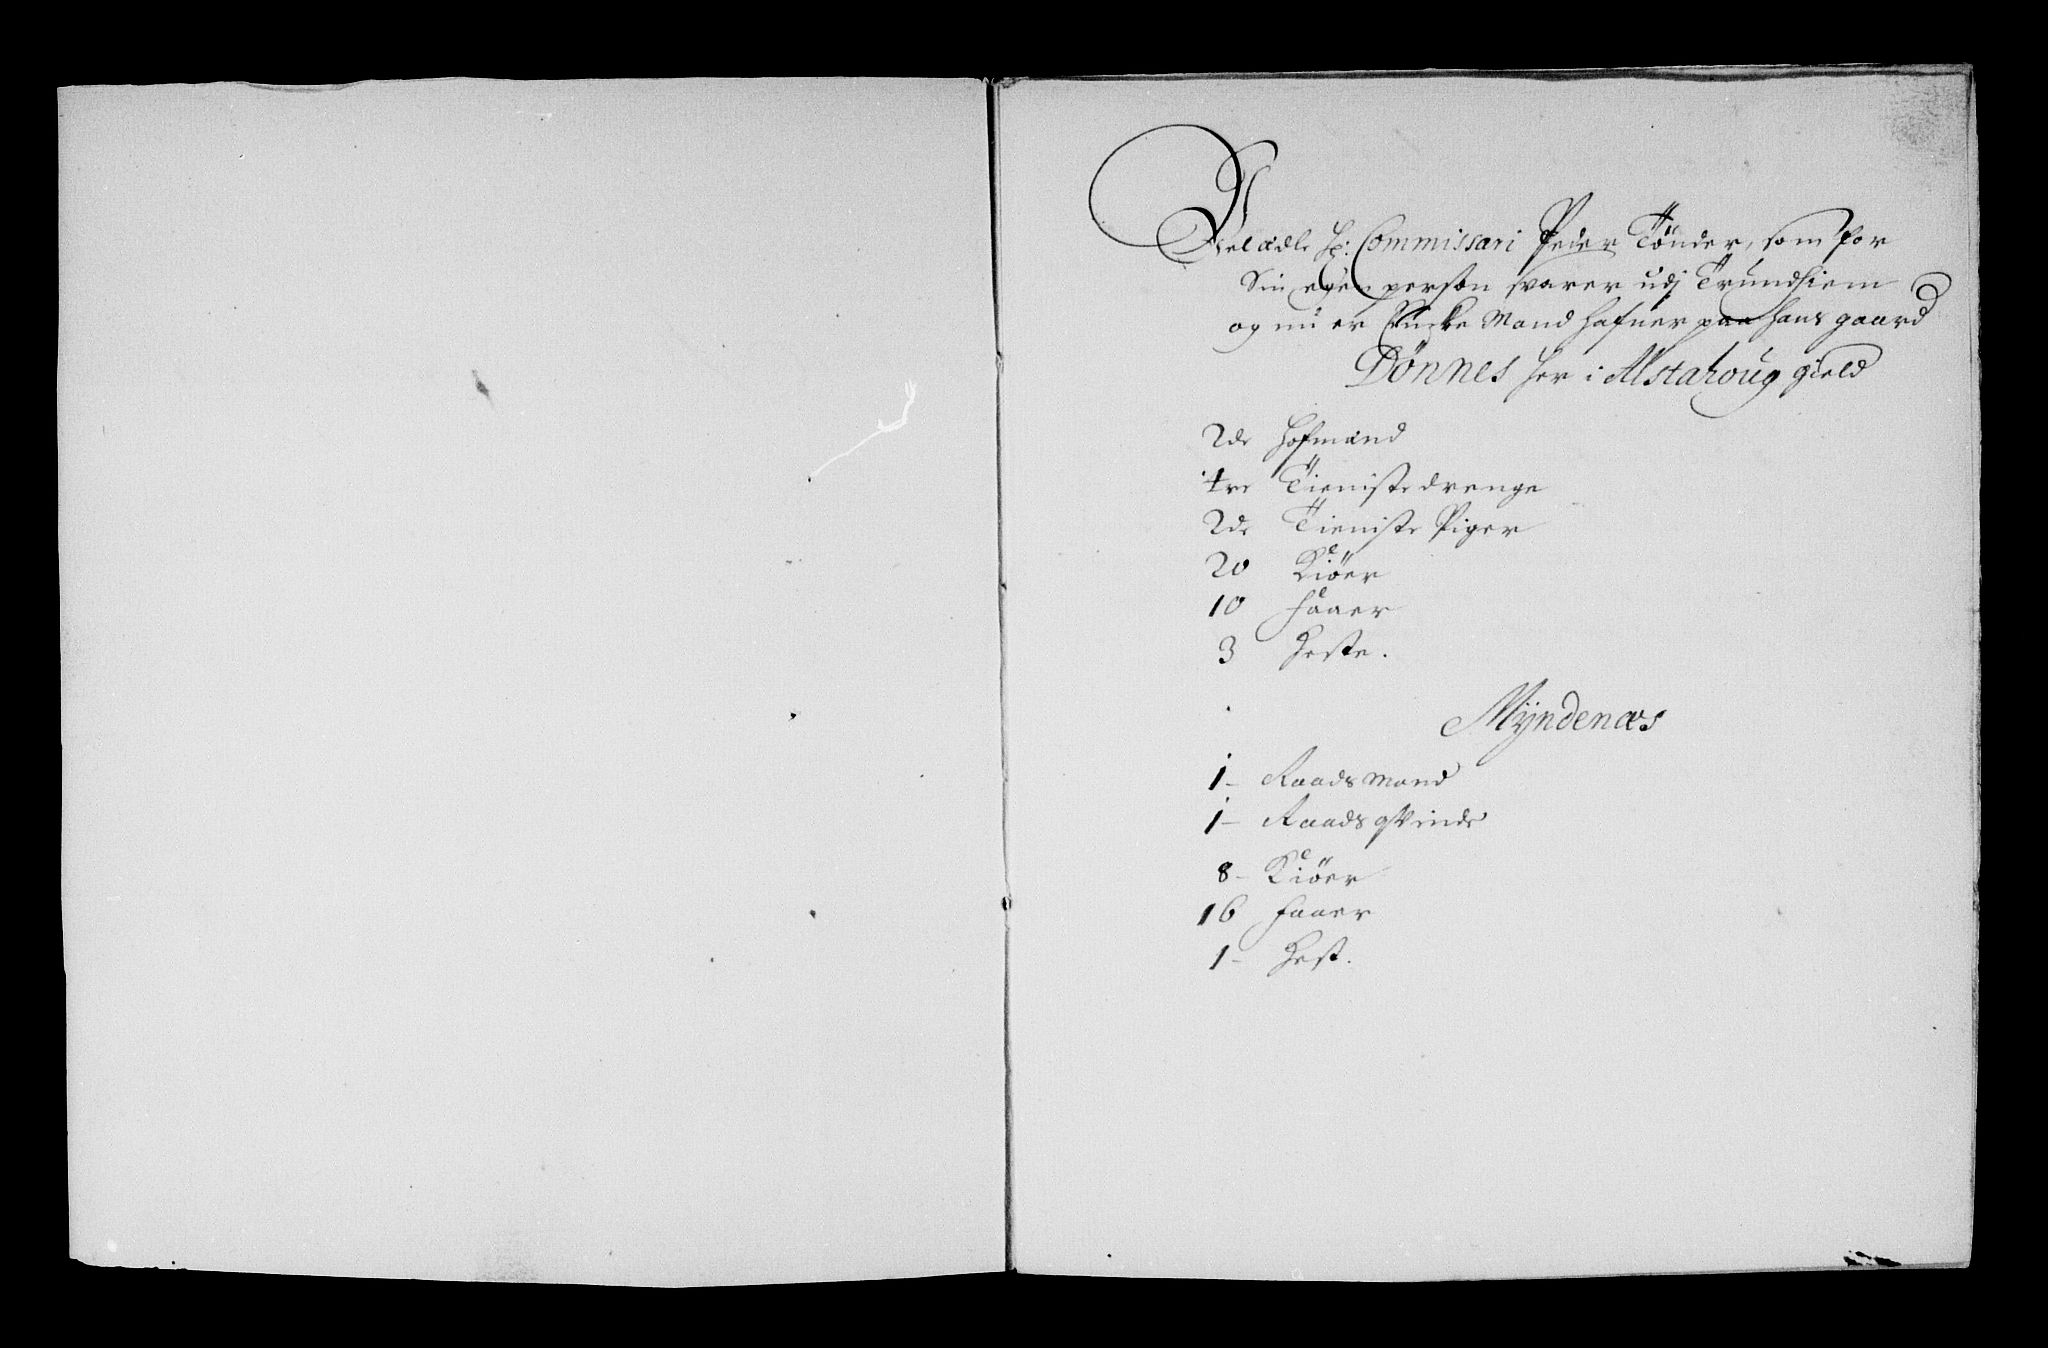 Velædle Hr: Commissari Peder Tönder, som for
Sin egen person svarer udj Trundhiem
og nu er Encke Mand hafuer paa hans gaard
Dönnes her i Alstahoug gield
2de Hofmænd
tre Tienistedrenge
2de Tieniste Piger
20 Kiöer
10 faaer
3 Heste.
Mÿndenæs
1- Raadsmand
1- Raadsqvinde
8- Kiöer
16 faaer
1- Hest.